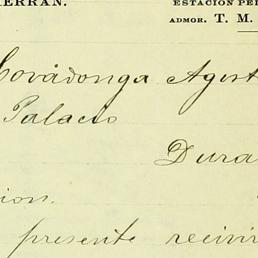 HERRAN.
ESTACION PE
ADMOR. T. M.
Covadonga Agost
Palacio
Dura
ion.
presente recivir